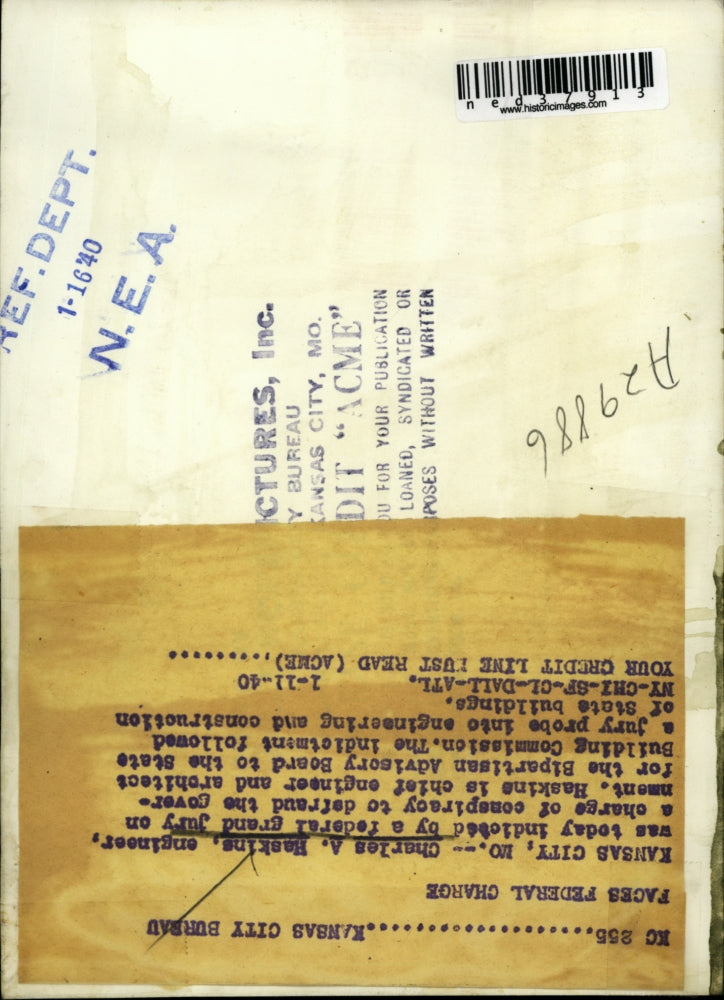 ned37913
www.historicimages.com
REF. DEPT.
1-16'40
N.E.A.
CTURES, Inc.
Y BUREAU
KANSAS CITY, MO.
DIT "ACME"
OU FOR YOUR PUBLICATION
LOANED, SYNDICATED OR
POSES WITHOUT WRITTEN
A29886
KC 255......................KANSAS CITY BUREAU
FACES FEDERAL CHARGE
KANSAS CITY, MO.-- Charles A. Haskins, engineer,
was today indicted by a federal grand jury on
a charge of conspiracy to defraud the gover-
nment. Haskins is chief engineer and architect
for the Bipartisan Advisory Board to the State
Building Commission. The indictment followed
a jury probe into engineering and construction
of state buildings.
NY-CHI-SF-CL-DALL-ATL. 1-11-40
YOUR CREDIT LINE MUST READ (ACME)..........